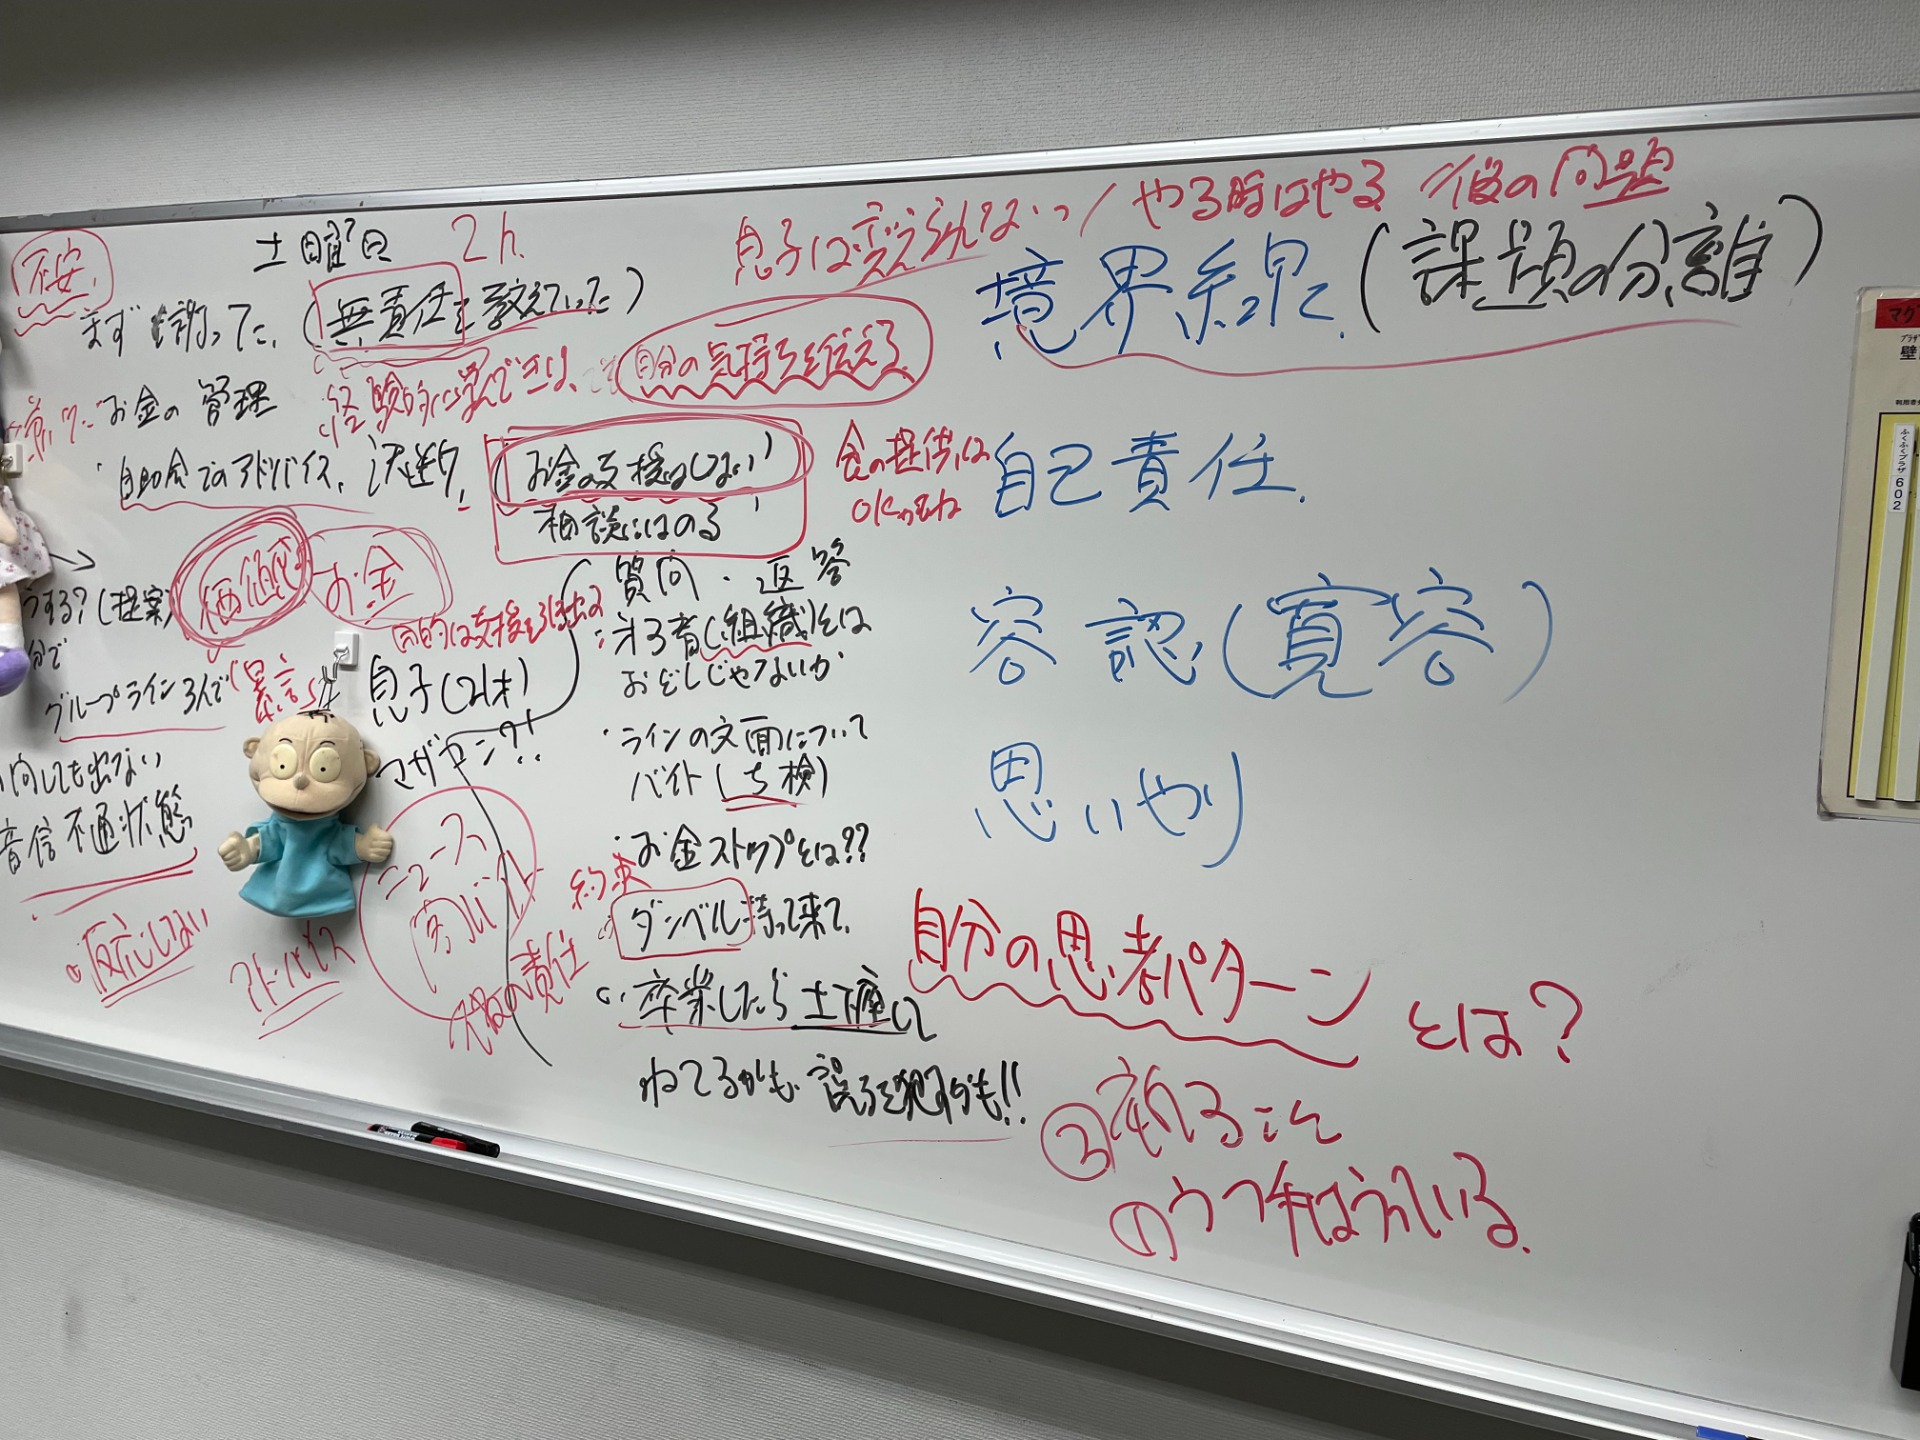 不安
土曜日 2h.
まず謝った、(無責任を教えていた)
お金の管理
経験的に学んできた、
自分の気持ちを伝える
・自助会でのアドバイス、
(お金の支援はしない)
相談にはのる
食の提供は
OKかもね
価値観
お金
うする?(提案)
分で
グループライン3人で(暴言)
息子(21才)
マザヤング!!
何しても出ない
音信不通状態
・反応しない
アドバイス
ニュース
闇バイト
質問・返答
:第3者(組織)とは
おどしじゃないか
・ラインの文面について
バイト(ち検)
・お金ストップとは??
約束
ダンベル持って来て、
責任
卒業したら土下座して
ねてるかも 誤ちを犯すかも!!
息子は変えられないっ/やる時はやる/彼の問題
境界線、(課題の分離)
自己責任.
容認(寛容)
思いやり
自分の思考パターンとは?
③ 祈ること
マグ
壁
ふくふくプラザ602